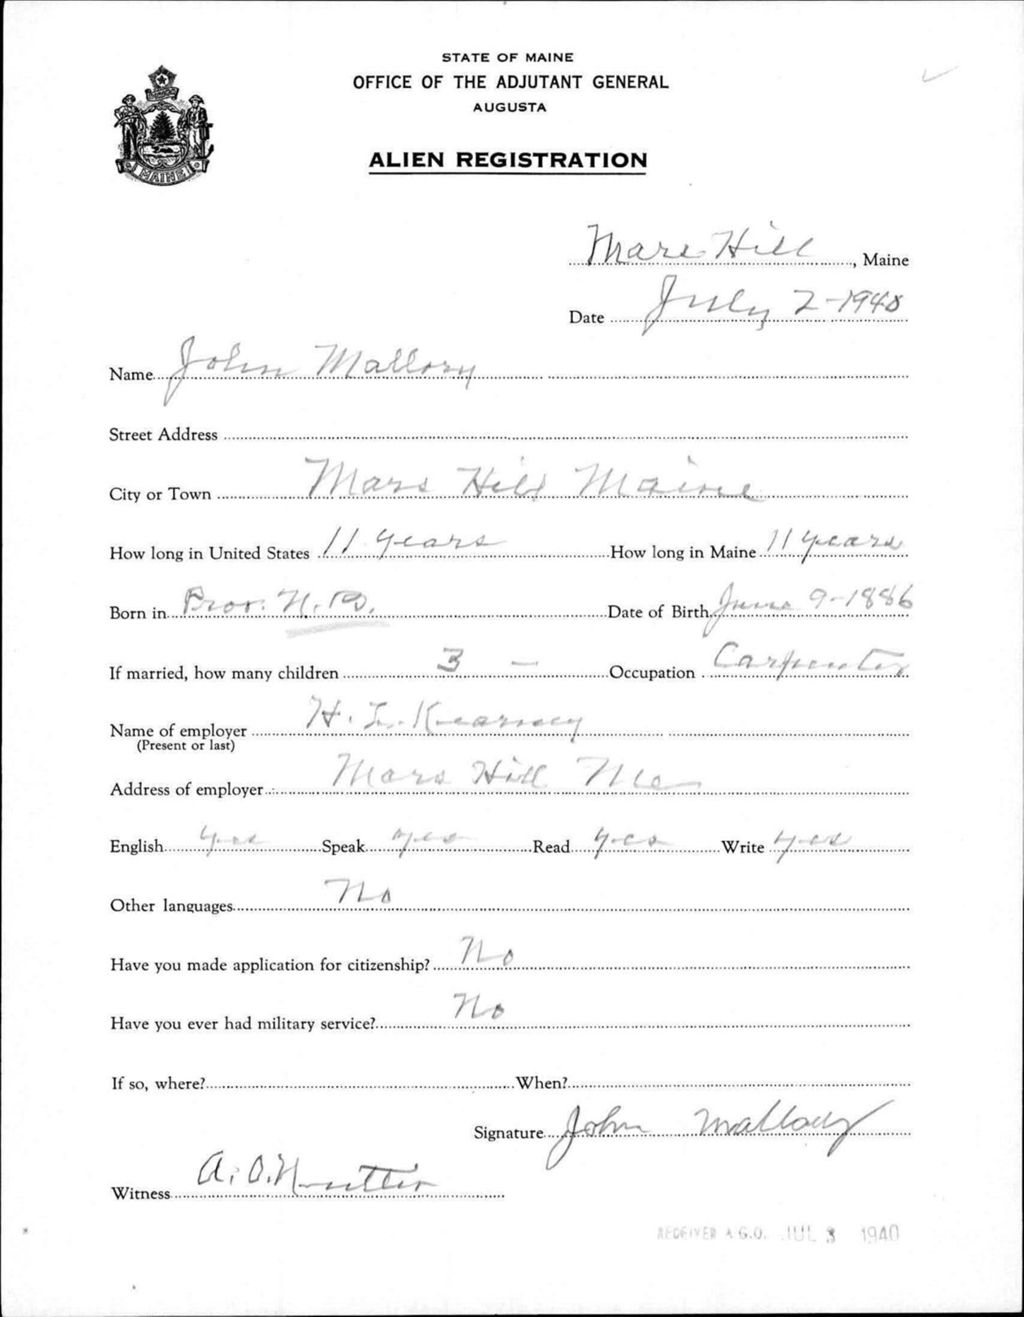 STATE OF MAINE
OFFICE OF THE ADJUTANT GENERAL
AUGUSTA
ALIEN REGISTRATION
MAINE
Mars Hill, Maine
Date July 2-1940
Name John Mallory
Street Address
City or Town Mars Hill Maine
How long in United States 11 years How long in Maine 11 years
Born in Prov. N.B. Date of Birth June 9-1886
If married, how many children 3 — Occupation Carpenter
Name of employer H. L. Kearney
(Present or last)
Address of employer Mars Hill Me
English yes Speak yes Read yes Write yes
Other languages No
Have you made application for citizenship? No
Have you ever had military service? No
If so, where? When?
Signature John Mallory
Witness A. O.
RECEIVED A.G.O. JUL 3 1940